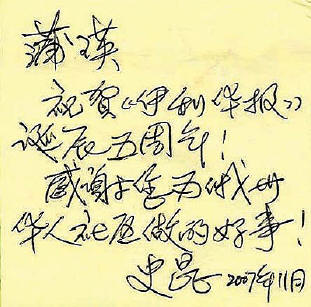 蒲瑛
祝贺《伊利华报》
诞辰五周年！
感谢你们为俄州
华人社区做的好事！
史昆 2007年11月